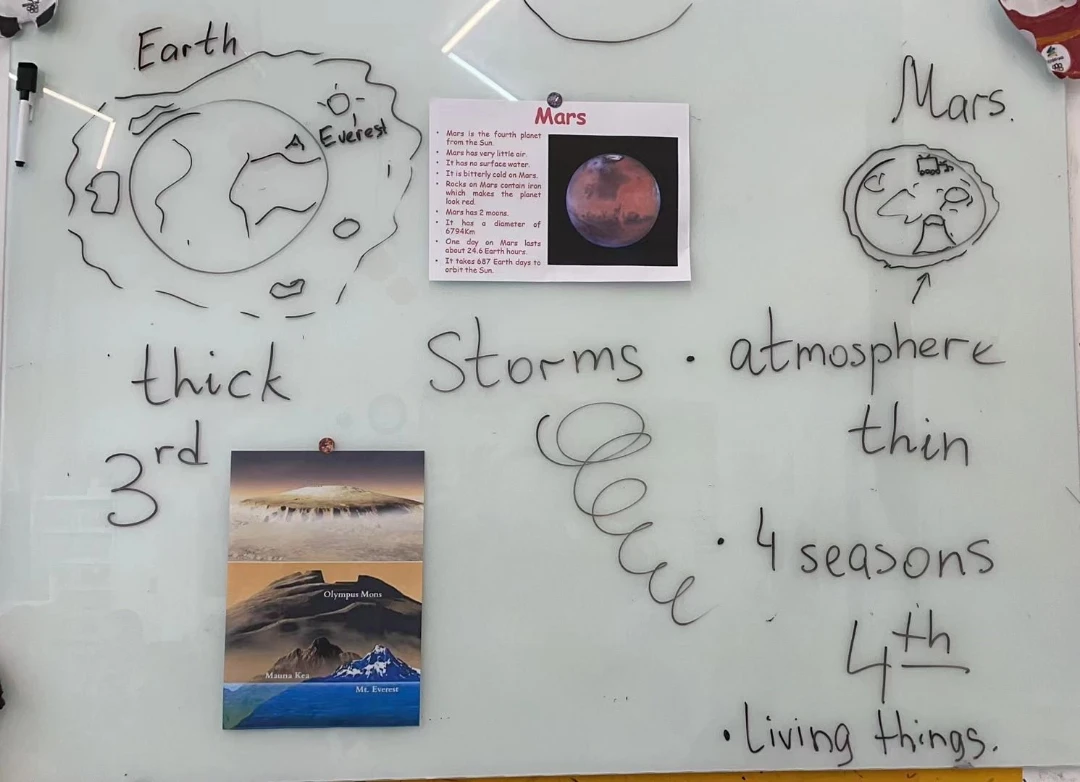 Earth
Everest
Mars
• Mars is the fourth planet
from the Sun.
• Mars has very little air.
• It has no surface water.
• It is bitterly cold on Mars.
• Rocks on Mars contain iron
which makes the planet
look red.
• Mars has 2 moons.
• It has a diameter of
6794Km
• One day on Mars lasts
about 24.6 Earth hours.
• It takes 687 Earth days to
orbit the Sun.
Mars.
thick
3rd
Storms
• atmosphere
thin
• 4 seasons
4th
• Living things.
Olympus Mons
Mauna Kea
Mt. Everest